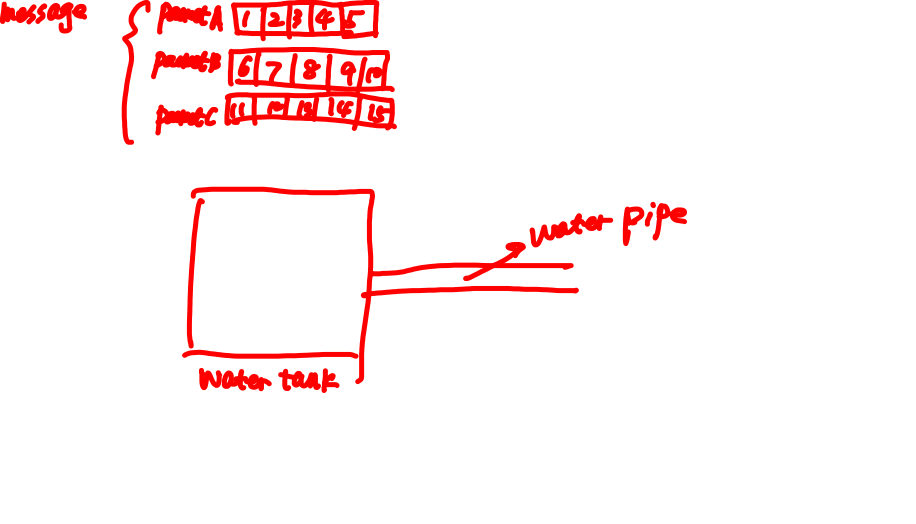 message
panetA 1 2 3 4 5
panetB 6 7 8 9 10
panetC 11 12 13 14 15
water pipe
water tank